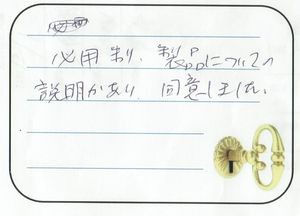 必用剤、製品についての
説明があり 同意しました。